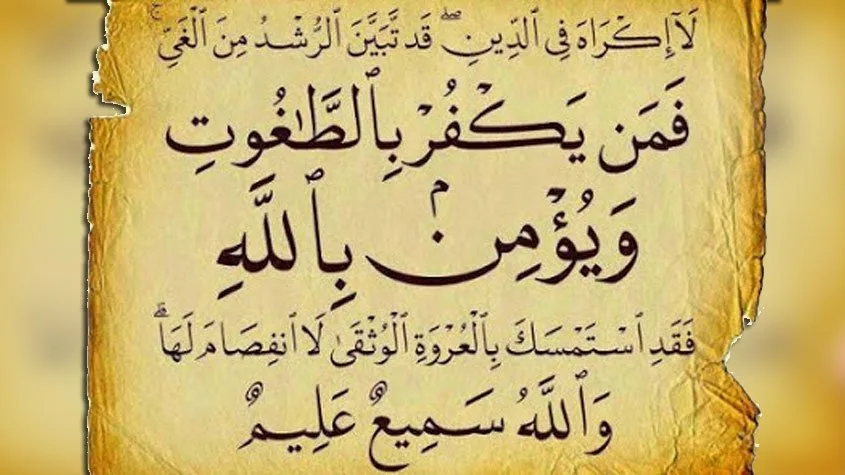 لَآ إِكْرَاهَ فِى ٱلدِّينِ ۖ قَد تَّبَيَّنَ ٱلرُّشْدُ مِنَ ٱلْغَىِّ ۚ
فَمَن يَكْفُرْ بِٱلطَّـٰغُوتِ
وَيُؤْمِنۢ بِٱللَّهِ
فَقَدِ ٱسْتَمْسَكَ بِٱلْعُرْوَةِ ٱلْوُثْقَىٰ لَا ٱنفِصَامَ لَهَا ۗ
وَٱللَّهُ سَمِيعٌ عَلِيمٌ